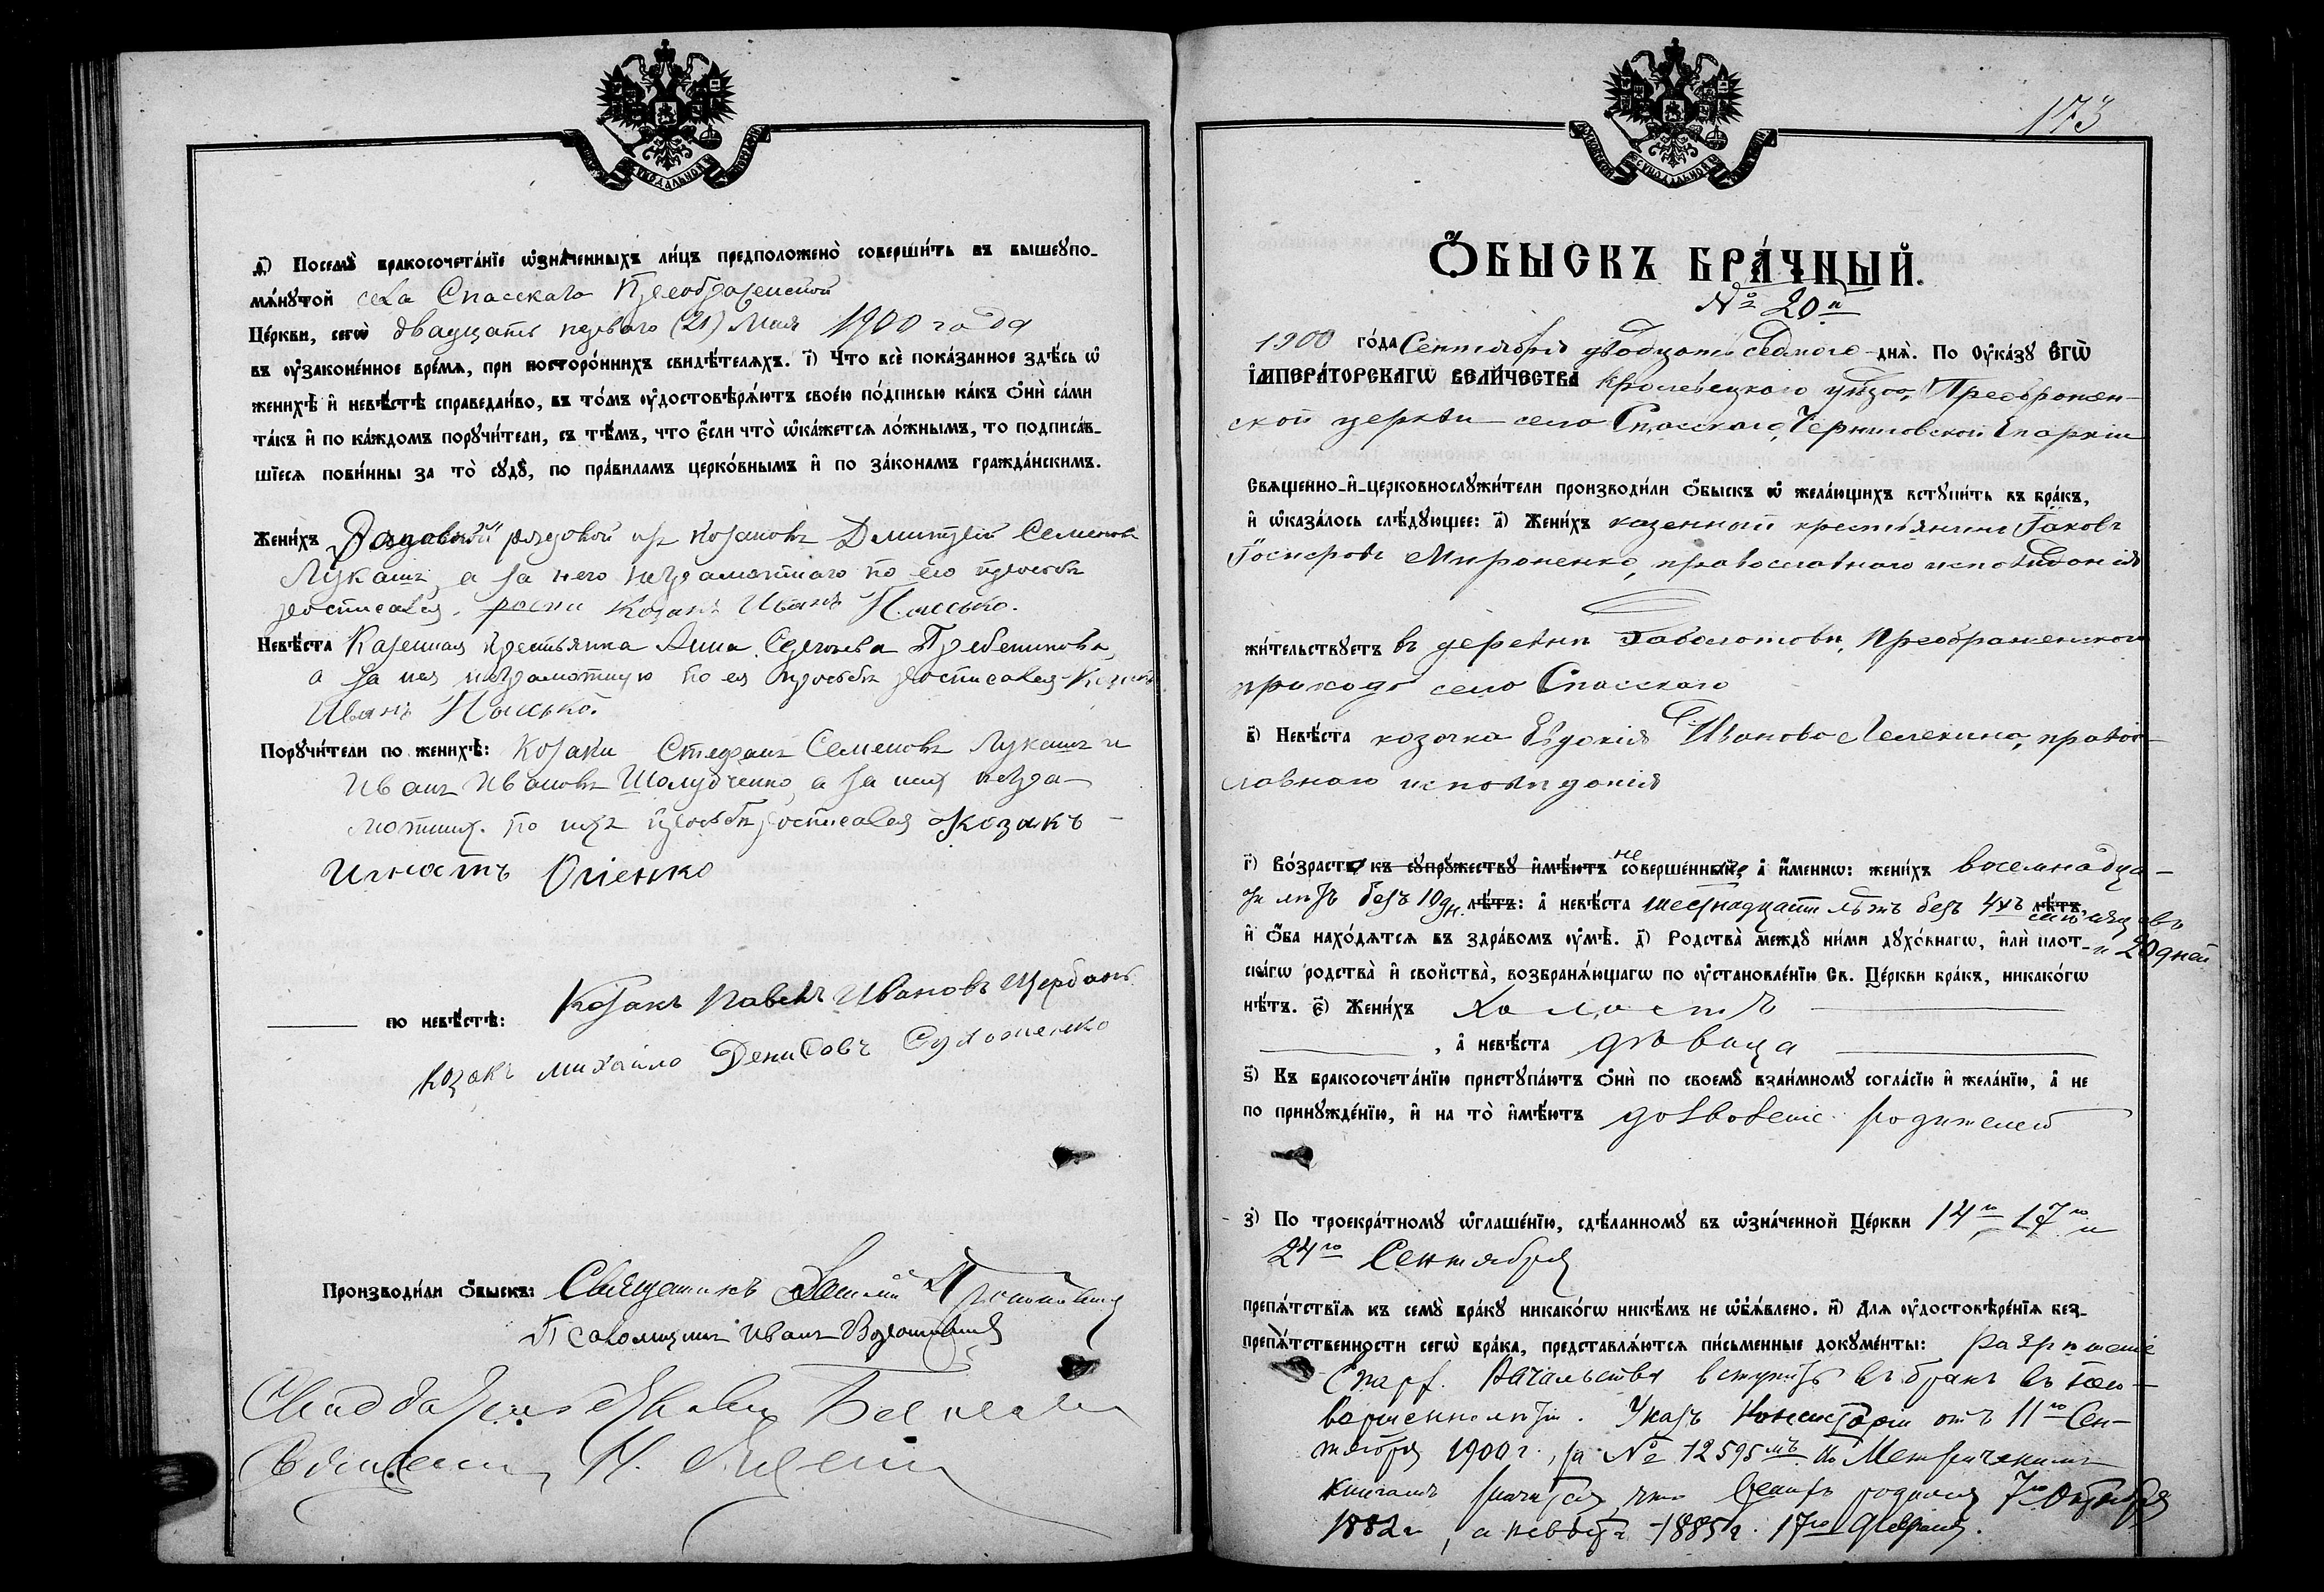 д҃) Посемꙋ̀ бракосочета́нїе ѡ҆зна́ченныхъ ли́цъ предположено̀ соверши́ть въ вышеꙋпо-
мѧ́нꙋтой села Спасскаго Преображенской
Це́ркви, сегѡ̀ двадцать перваго (21) Мая 1900 года
въ ᲂу҆законе́нное вре́мѧ, при посторо́ннихъ свидѣ́телѧхъ. і҃) Что всѐ пока́занное здѣ́сь ѡ҆
женихѣ̀ и҆ невѣ́стѣ справедли́во, въ то́мъ ᲂу҆достовѣрѧ́ютъ свое́ю по́дписью ка́къ ѻ҆нѝ са́ми
та́къ и҆ по ка́ждомъ порꙋчи́тели, съ тѣ́мъ, что є҆́сли что̀ ѡ҆ка́жетсѧ ло́жнымъ, то подписа́в-
шїесѧ пови́нны за то̀ сꙋдꙋ̀, по пра́виламъ церко́внымъ и҆ по зако́намъ гражда́нскимъ.
Жени́хъ рядовой изъ козаковъ Димитрій Семеновъ
Лукашъ, а за него неграмотнаго по его просьбѣ
росписался козакъ Иванъ
Невѣ́ста Казенная крестьянка Анна Сергѣева Гребеникова,
а за нея неграмотную по ея просьбѣ росписался Козакъ
Иванъ
Порꙋчи́тели по женихѣ̀: Козаки Стефанъ Семеновъ Лукашъ и
Иванъ Ивановъ Шолудченко, а за них негра-
мотных по ихъ просьбѣ росписался Козакъ
Игнатъ Огіенко
по невѣ́стѣ: Козакъ Павелъ Ивановъ Щербакъ
Козакъ Михаило Денисовъ
Производи́ли ѻ҆́быскъ: Священникъ
Псаломщикъ Иванъ
173
Ѻ҆́БЫСКЪ БРА́ЧНЫЙ.
№ 20й
1900 го́да Сентября двадцать седмого днѧ̀. По Оу҆ка́зꙋ Є҆гѡ̀
І҆мпера́торскагѡ Вели́чества Кролевецкого уѣзда, Преображен-
ской церкви села Спасскаго, Черниговской Епархіи
Свѧще́нно-и҆-церковнослꙋжи́тели производи́ли ѻ҆́быскъ ѡ҆ жела́ющихъ встꙋпи́ть въ бра́къ,
и҆ ѡ҆каза́лось слѣ́дꙋющее: а҃) Жени́хъ казенный крестьянинъ Іаковъ
Мироненко, православнаго исповѣданія
жи́тельствꙋетъ въ деревнѣ Заболотовѣ, Преображенского
прихода села Спасского
в҃) Невѣ́ста козачка Евдокія Иванова православ-
славного исповѣданія
г҃) Во́зрастъ къ сꙋпрꙋ́жествꙋ и҆мѣ́ютъ не соверше́нный, а҆ и҆́меннѡ: жени́хъ восемнадца-
ти лѣтъ безъ 10 дн. лѣ́тъ: а҆ невѣ́ста шестнадцати лѣтъ безъ 4хъ мѣсяцевъ лѣ́тъ
и҆ ѻ҆́ба нахо́дѧтсѧ въ здра́вомъ ᲂу҆мѣ̀. д҃) Родства̀ междꙋ̀ ни́ми дꙋхо́внагѡ, и҆лѝ плот- и 20 дней
ска́гѡ родства̀ и҆ сво́йства, возбранѧ́ющагѡ по ᲂу҆становле́нїю Св. Це́ркви бра́къ, никако́гѡ
нѣ́тъ. є҃) Жени́хъ холостъ
, а҆ невѣ́ста дѣвица
ѕ҃) Къ бракосочета́нїю пристꙋпа́ютъ ѻ҆нѝ по своемꙋ̀ взаи́мномꙋ согла́сїю и҆ жела́нїю, а҆ не
по принꙋжде́нїю, и҆ на то̀ и҆мѣ́ютъ дозволеніе родителей
з҃) По троекра́тномꙋ ѡ҆глаше́нїю, сдѣ́ланномꙋ въ ѡ҆зна́ченной Це́ркви 14го, 17го и
24го Сентября
препѧ́тствїѧ къ семꙋ̀ бра́кꙋ никако́гѡ никѣ́мъ не ѡ҆б̾ѧ́влено. и҃) Длѧ ᲂу҆достовѣре́нїѧ без-
препѧ́тственности сегѡ̀ бра́ка, представлѧ́ютсѧ пи́сьменные докꙋме́нты: Разрѣшеніе
Епарх. Начальства вступить въ бракъ въ несо-
вершеннолѣтіи. Указъ Консисторіи отъ 11го Сен-
тября 1900 г. за № 12595мъ. По Метрическимъ
книгамъ значится, что женихъ родился 7го Октября
1882 г, а невѣста 1885 г. 17го Февраля.